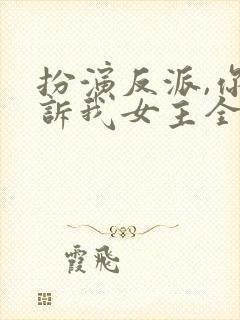 扮演反派,你
訴我女主全
霞飛